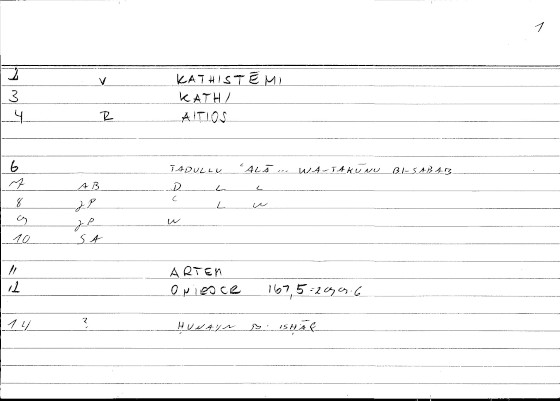 1
2 V KATHISTĒMI
3 KATH/
4 R AITIOS
6 TADULLU ʿALĀ ... WA-TAKŪNU BI-SABAB
7 AB D L L
8 JP L W
9 JP W
10 SA
11 ARTEM
12 167,5
14 ? ḤUNAYN B. ISḤĀQ